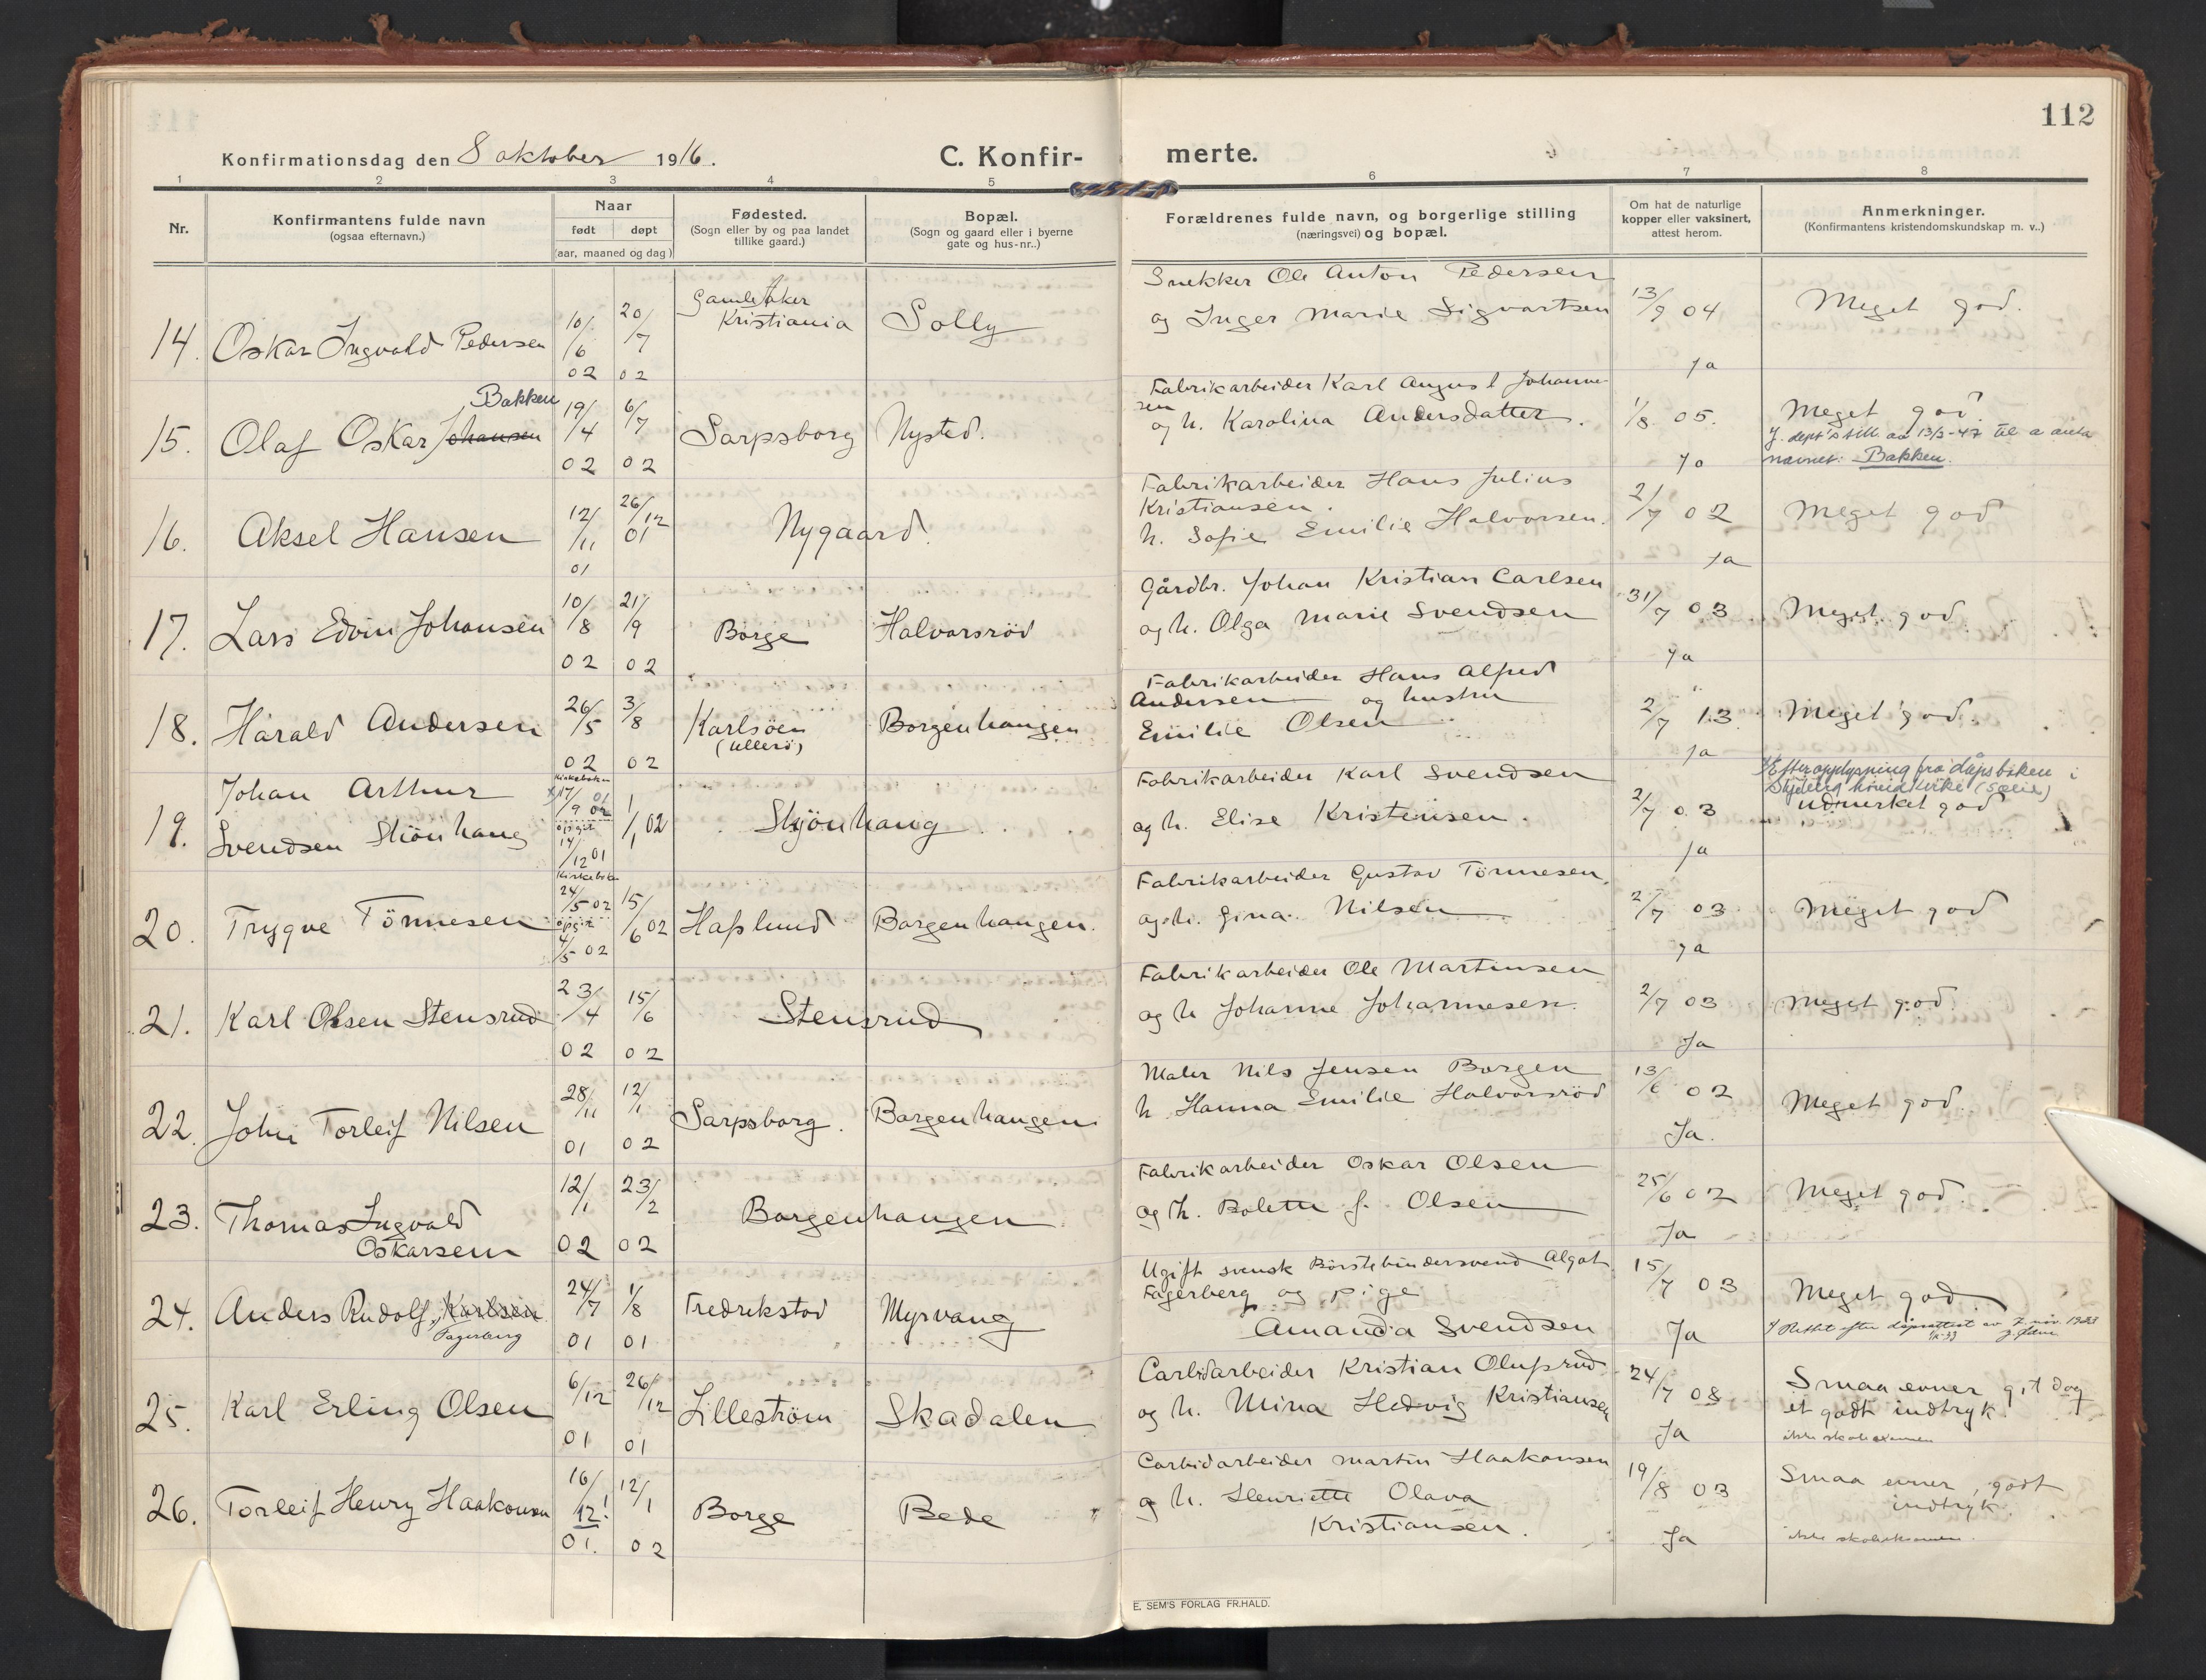 112
Konfirmationsdag den 8 oktober 1916.
C. Konfir-
merte.
1 2 3 4 5 6 7 8
Nr.
Konfirmantens fulde navn
(ogsaa efternavn.)
Naar
født døpt
(aar, maaned og dag)
Fødested.
(Sogn eller by og paa landet
tillike gaard.)
Bopæl.
(Sogn og gaard eller i byerne
gate og hus-nr..)
Forældrenes fulde navn, og borgerlige stilling
(næringsvei) og bopæl.
Om hat de naturlige
kopper eller vaksinert,
attest herom.
Anmerkninger.
(Konfirmantens kristendomskundskap m. v..)
14. Oskar Ingvald Pedersen
10/6 02
20/7 02
Gamle Aker
Kristiania
Solly
Snekker Ole Anton Pedersen
og Inger Marie Sigvartsen
13/9 04
Ja
Meget god.
Bakken
15. Olaf Oskar Johansen
19/4 02
6/7 02
Sarpsborg
Nysted.
Fabrikarbeider Karl August Johanne-
sen
og h. Karolina Andersdatter.
1/8 05.
Ja
Meget god.
J. dept's till. av 13/2-47 til a anta
navnet: Bakken.
16. Aksel Hansen
12/11 01
26/12 01
Nygaard.
Fabrikarbeider Hans Julius
Kristiansen.
h. Sofie Emilie Halvorsen.
2/7 02
Ja
Meget god
17. Lars Edvin Johansen
10/8 02
21/9 02
Borge
Halvorsröd
Gårdbr. Johan Kristian Carlsen
og h. Olga Marie Svendsen
31/7 03
Ja
Meget god.
18. Harald Andersen
26/5 02
3/8 02
Karlsöen
(Ullerö)
Borgenhaugen
Fabrikarbeider Hans Alfred
Andersen og hustru
Emilie Olsen
2/7 13
Ja
Meget god.
19. Johan Arthur
Svendsen Skiönhaug
Kirkeboken
x) 17/9 01
opgit
14/12 01
1/1 02
Skjönhaug
Fabrikarbeider Karl Svendsen
og h. Elise Kristensen.
2/7 03
Ja
x) Efter opplysning fra dåpsboken i
udmerket god
20. Trygve Tönnesen
Kirkebok
24/5 02
opgit
4/5 02
15/6 02
Hafslund
Borgenhaugen.
Fabrikarbeider Gustav Tönnesen,
og h. Gina Nilsen
2/7 03
Ja
Meget god
21. Karl Olsen Stensrud
23/4 02
15/6 02
Stensrud
Fabrikarbeider Ole Martinsen
og h Johanne Johannesen.
2/7 03
Ja
Meget god.
22. John Torleif Nilsen
28/11 01
12/1 02
Sarpsborg.
Borgenhaugen
Maler Nils Jensen Borgen
h. Hanna Emilie Halvorsröd
13/6 02
Ja.
Meget god
23. Thomas Ingvald
Oskarsen
12/1 02
23/2 02
Borgenhaugen
Fabrikarbeider Oskar Olsen
og h. Bolette f. Olsen
25/6 02
Ja
Meget god.
24. Anders Rudolf Karlsen
Fagerberg
24/7 01
1/8 01
Fredrikstad
Myrvang
Ugift svensk Börstebindersvend Algot
Fagerberg og pige
Amanda Svendsen
15/7 03
Ja
Meget god
Rettet efter dåpsattest av 7. nov. 1933
25. Karl Erling Olsen
6/12 01
26/12 01
Lilleström
Skadalen
Carbidarbeider Kristian Olufsrud
og h. Mina Hedvig Kristiansen
24/7 08
Ja
Smaa evner, git dog
et godt indtryk.
ikke skoleexamen
26. Torleif Henry Haakonsen
16/12! 01.
12/1 02
Borge
Bede
Carbidarbeider Martin Haakonsen
og h. Henriette Olava
Kristiansen.
19/8 03
Ja
Smaa evner, godt
indtryk.
ikke skoleeksamen.
E. SEM'S FORLAG FR.HALD.